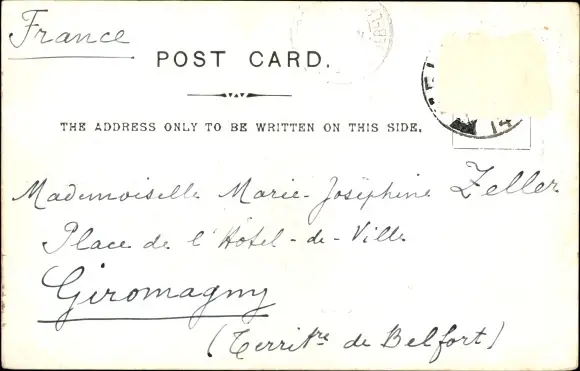 France
POST CARD.
THE ADDRESS ONLY TO BE WRITTEN ON THIS SIDE.
Mademoiselle Marie-Joséphine Zeller
Place de l'Hôtel-de-Ville
Giromagny
(Territre de Belfort)
14